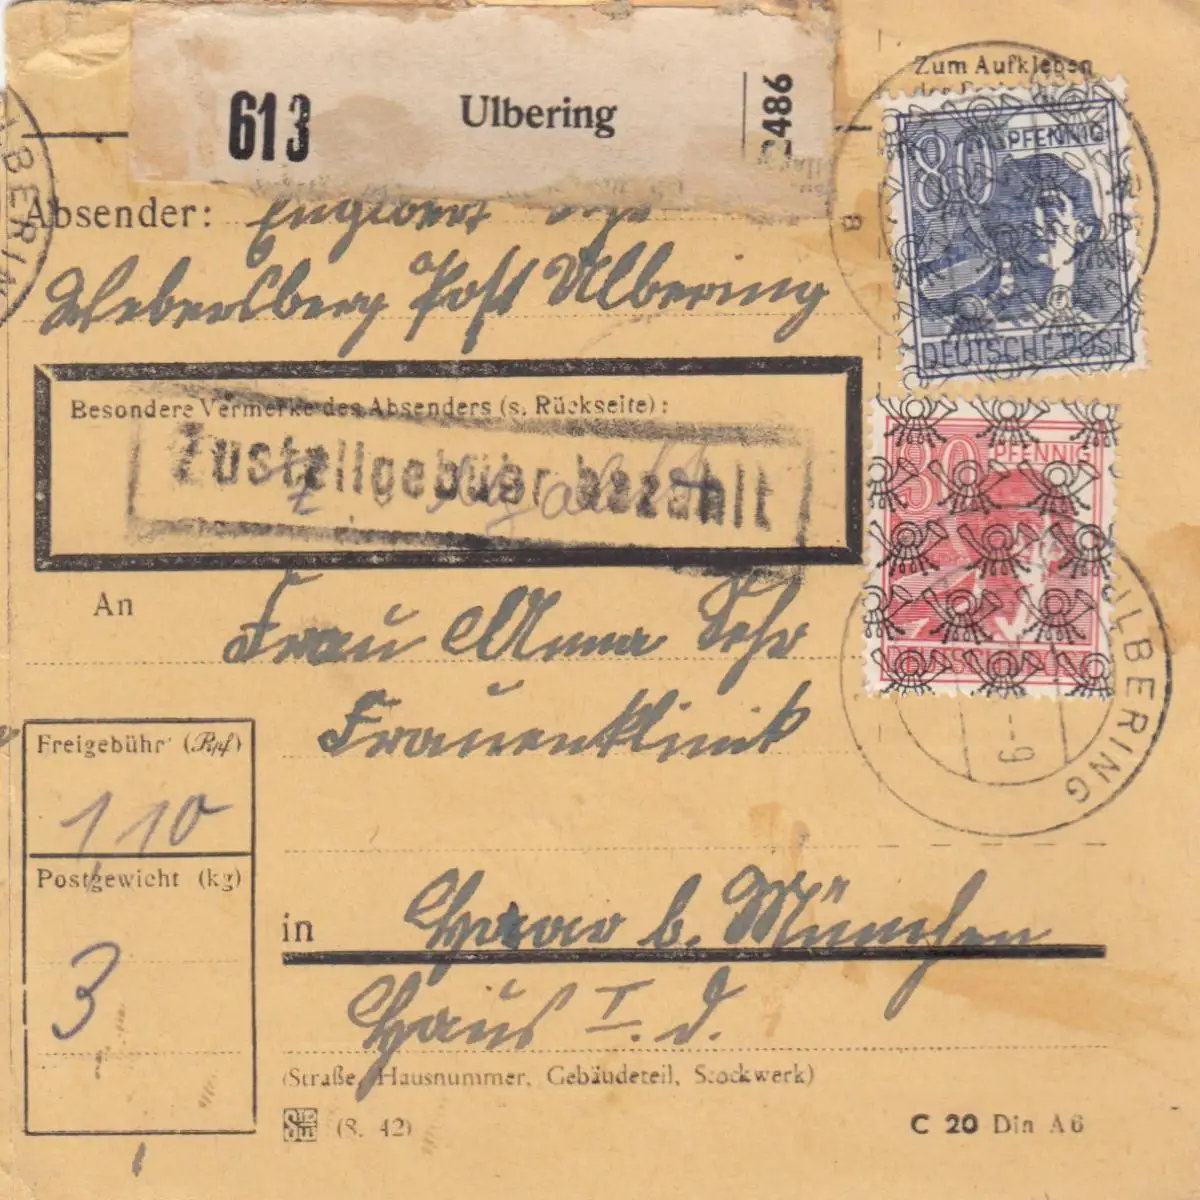 613 Ulbering 2486
Zum Aufkleben
Absender:
Webersberg Post Ulbering
80 PFENNIG
DEUTSCHE POST
Besondere Vermerke des Absenders (s. Rückseite):
Zustellgebüer bezahlt
30 PFENNIG
An Frau Anna Sehr
Frauenklinik
ULBERING
Freigebühr (Rpf)
110
Postgewicht (kg)
3
in Haar b. München
Haus I. d.
(Straße, Hausnummer, Gebäudeteil, Stockwerk)
(8. 42)
C 20 Din A6